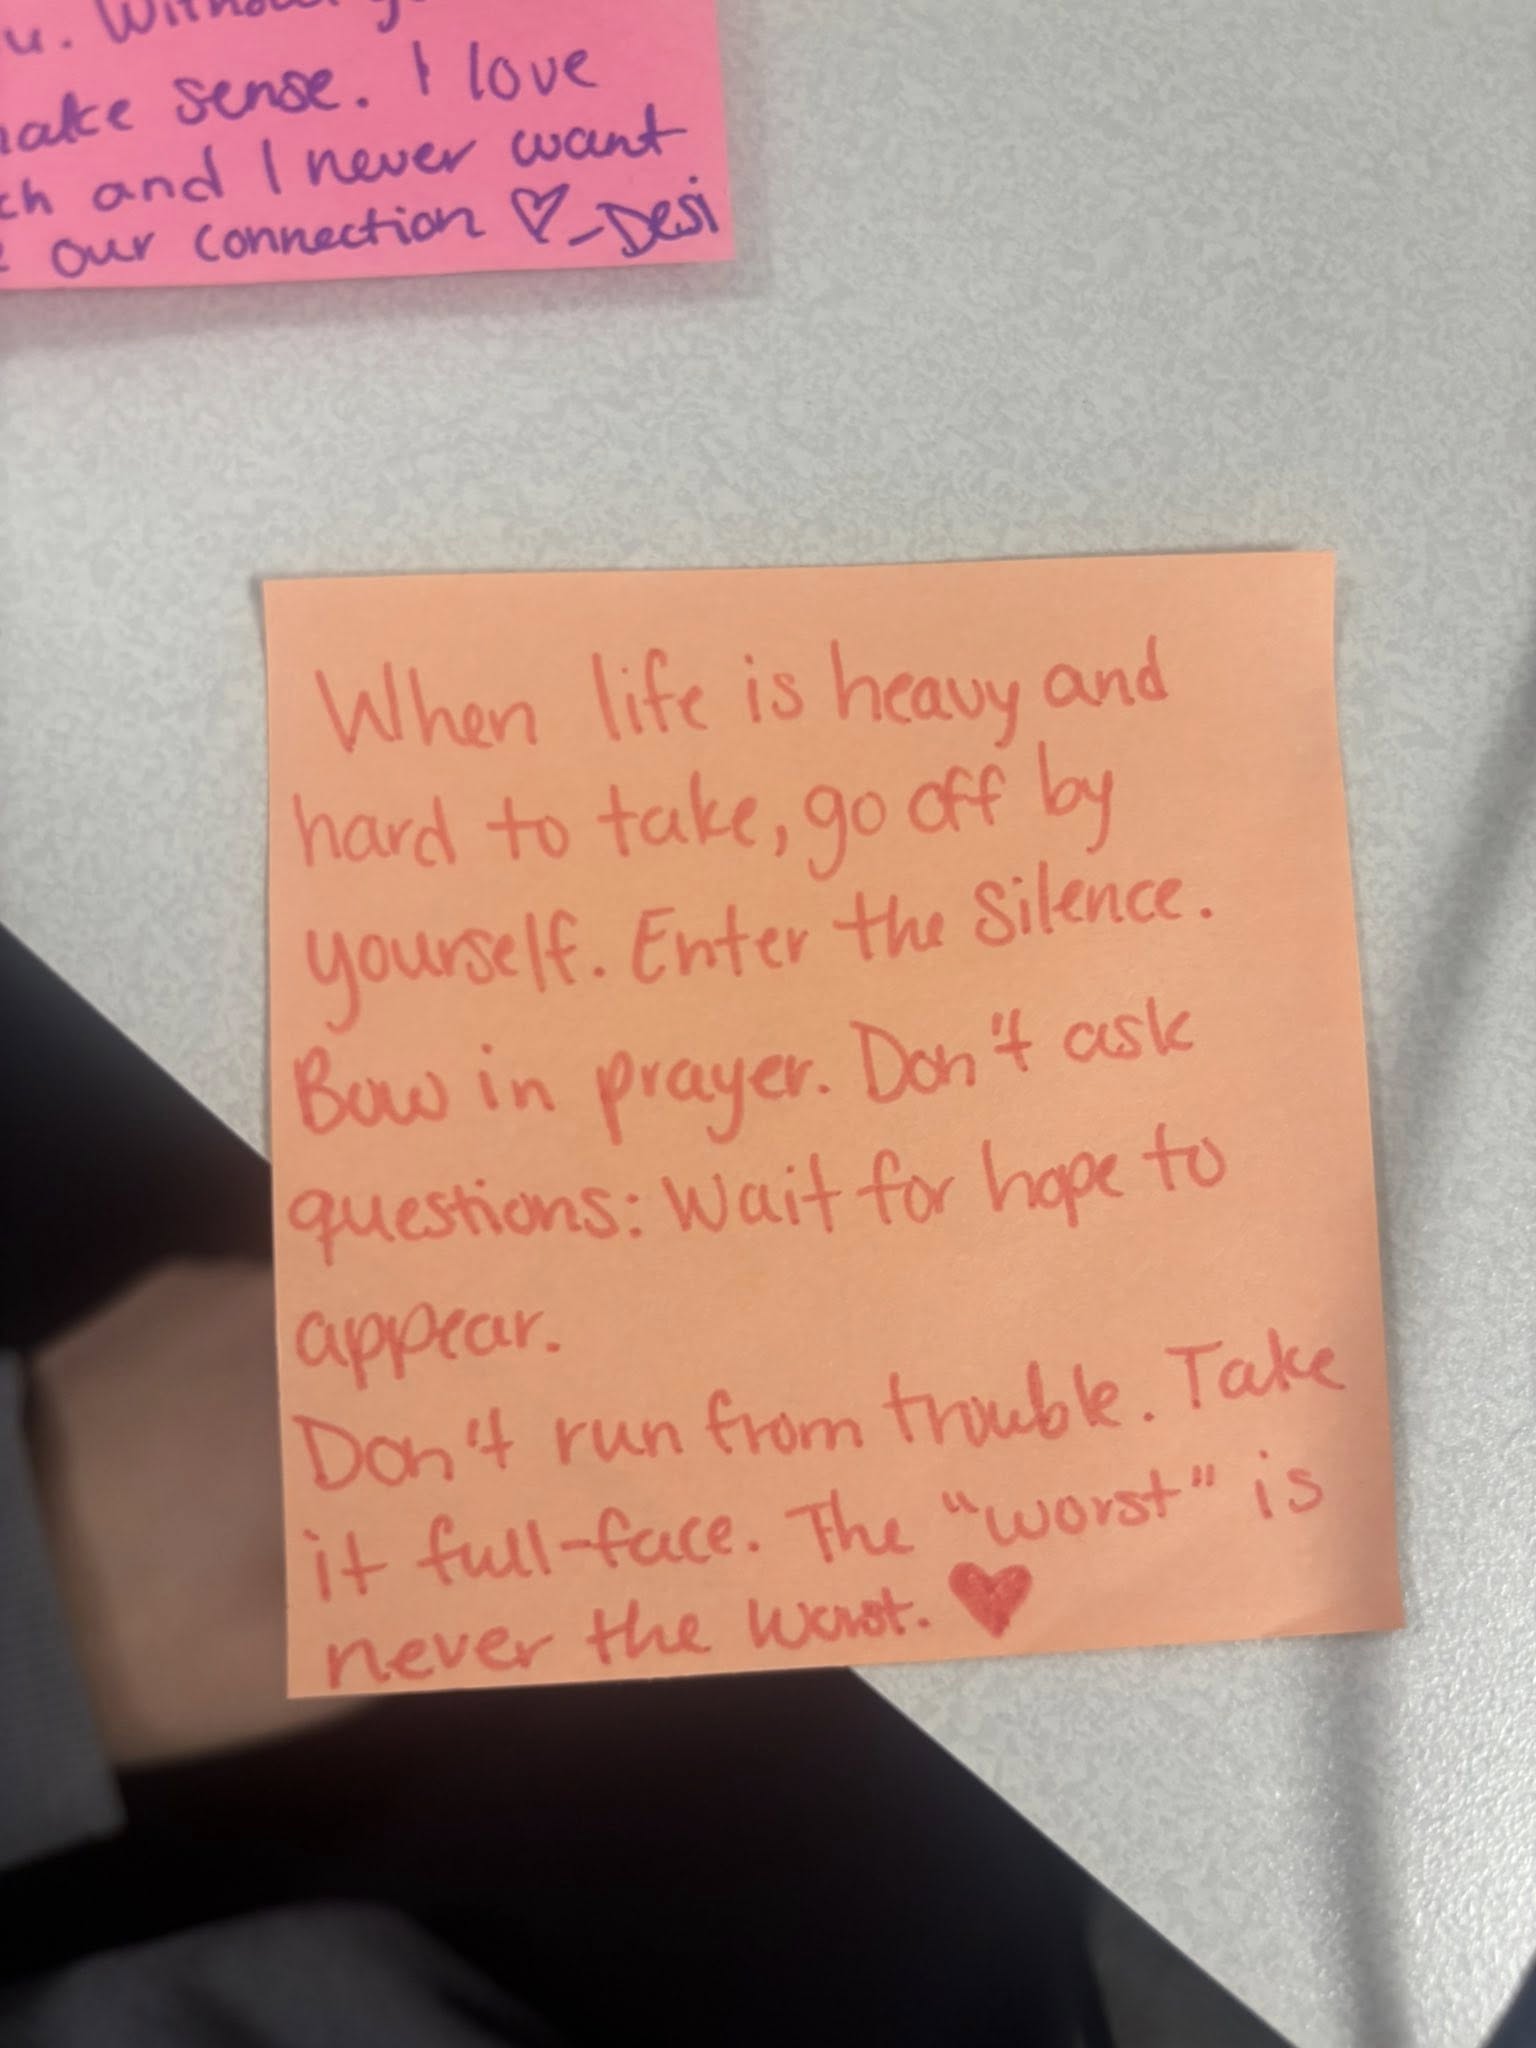 Without
make sense. I love
and I never want
our connection ♡ -Desi
When life is heavy and
hard to take, go off by
yourself. Enter the Silence.
Bow in prayer. Don't ask
questions: Wait for hope to
appear.
Don't run from trouble. Take
it full-face. The "worst" is
never the worst. ♥